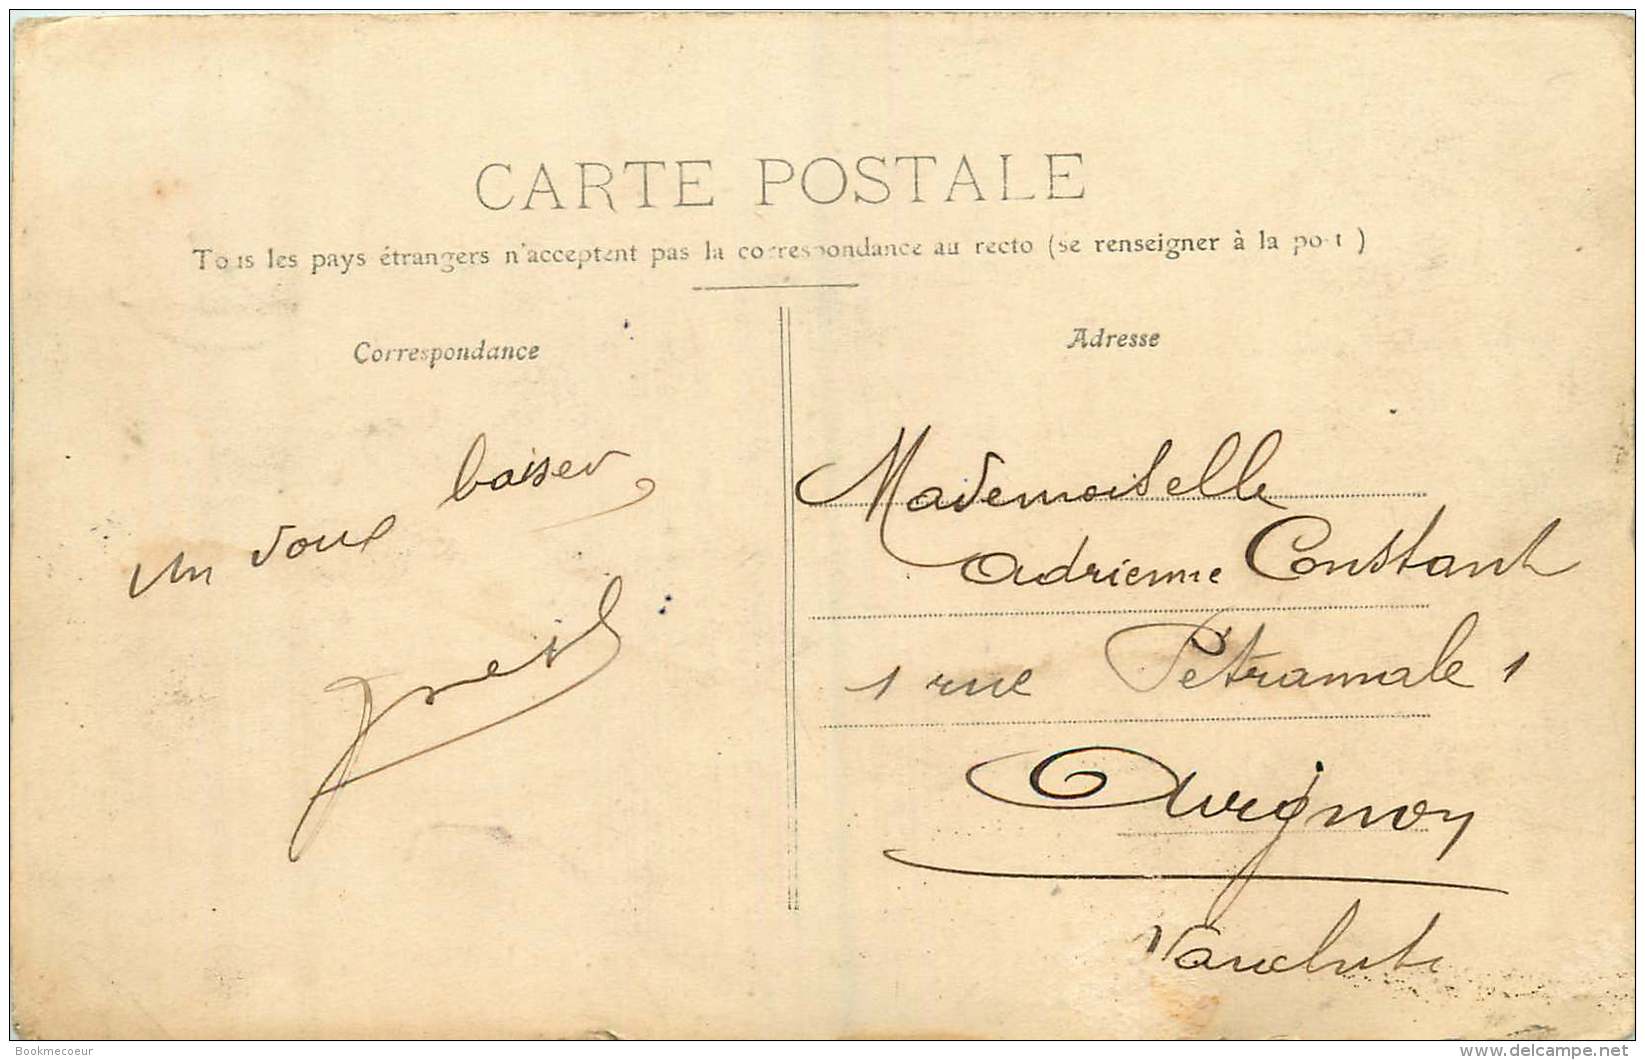 CARTE POSTALE
Tous les pays étrangers n'acceptent pas la correspondance au recto (se renseigner à la post)
Correspondance
Adresse
un doux baiser
Mademoiselle
Adrienne Constant
1 rue Petramale 1
Avignon
Vaucluse
Bookmecoeur
www.delcampe.net